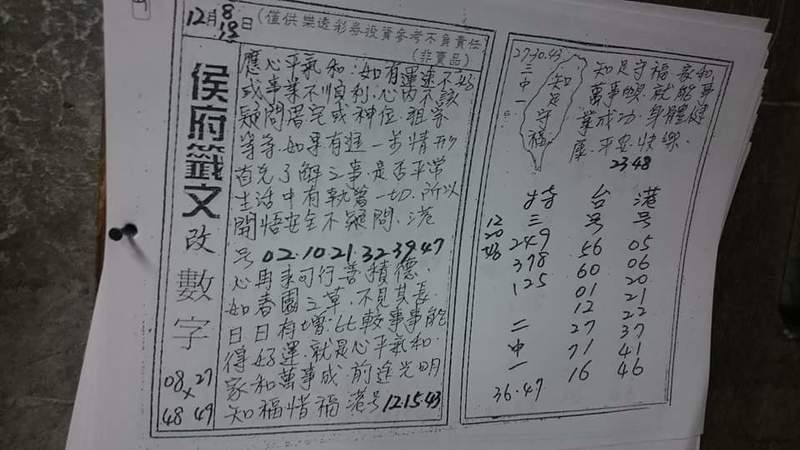 12月8日(僅供樂透彩券投資參考不負責任)
18
(非賣品)
侯府籤文改數字
08 27
×
48 49
應心平氣和:如有運途不好
或事業不順利.心內不該
疑問居宅或神位.祖宗
等等.如果有進一步情形
首先了解之事是否平常
生活中有執著一切.所以
開悟安全不疑問.港
号 02.10 21.32 39 47
心再來可行善積德.
如春園之草.不見其長
日日有增:比較事事能
得好運.就是心平氣和
家和萬事成.前途光明
知福惜福 港号 12 15 43
27-30.43
三中一
知足守福
知足守福 家和
萬事順 就能 事
業成功.身體健
康.平安.快樂.
23 48
特三
12
20
46
249
378
125
二中一
36.47
台号
56
60
01
12
27
71
16
港号
05
06
20
21
22
37
41
46